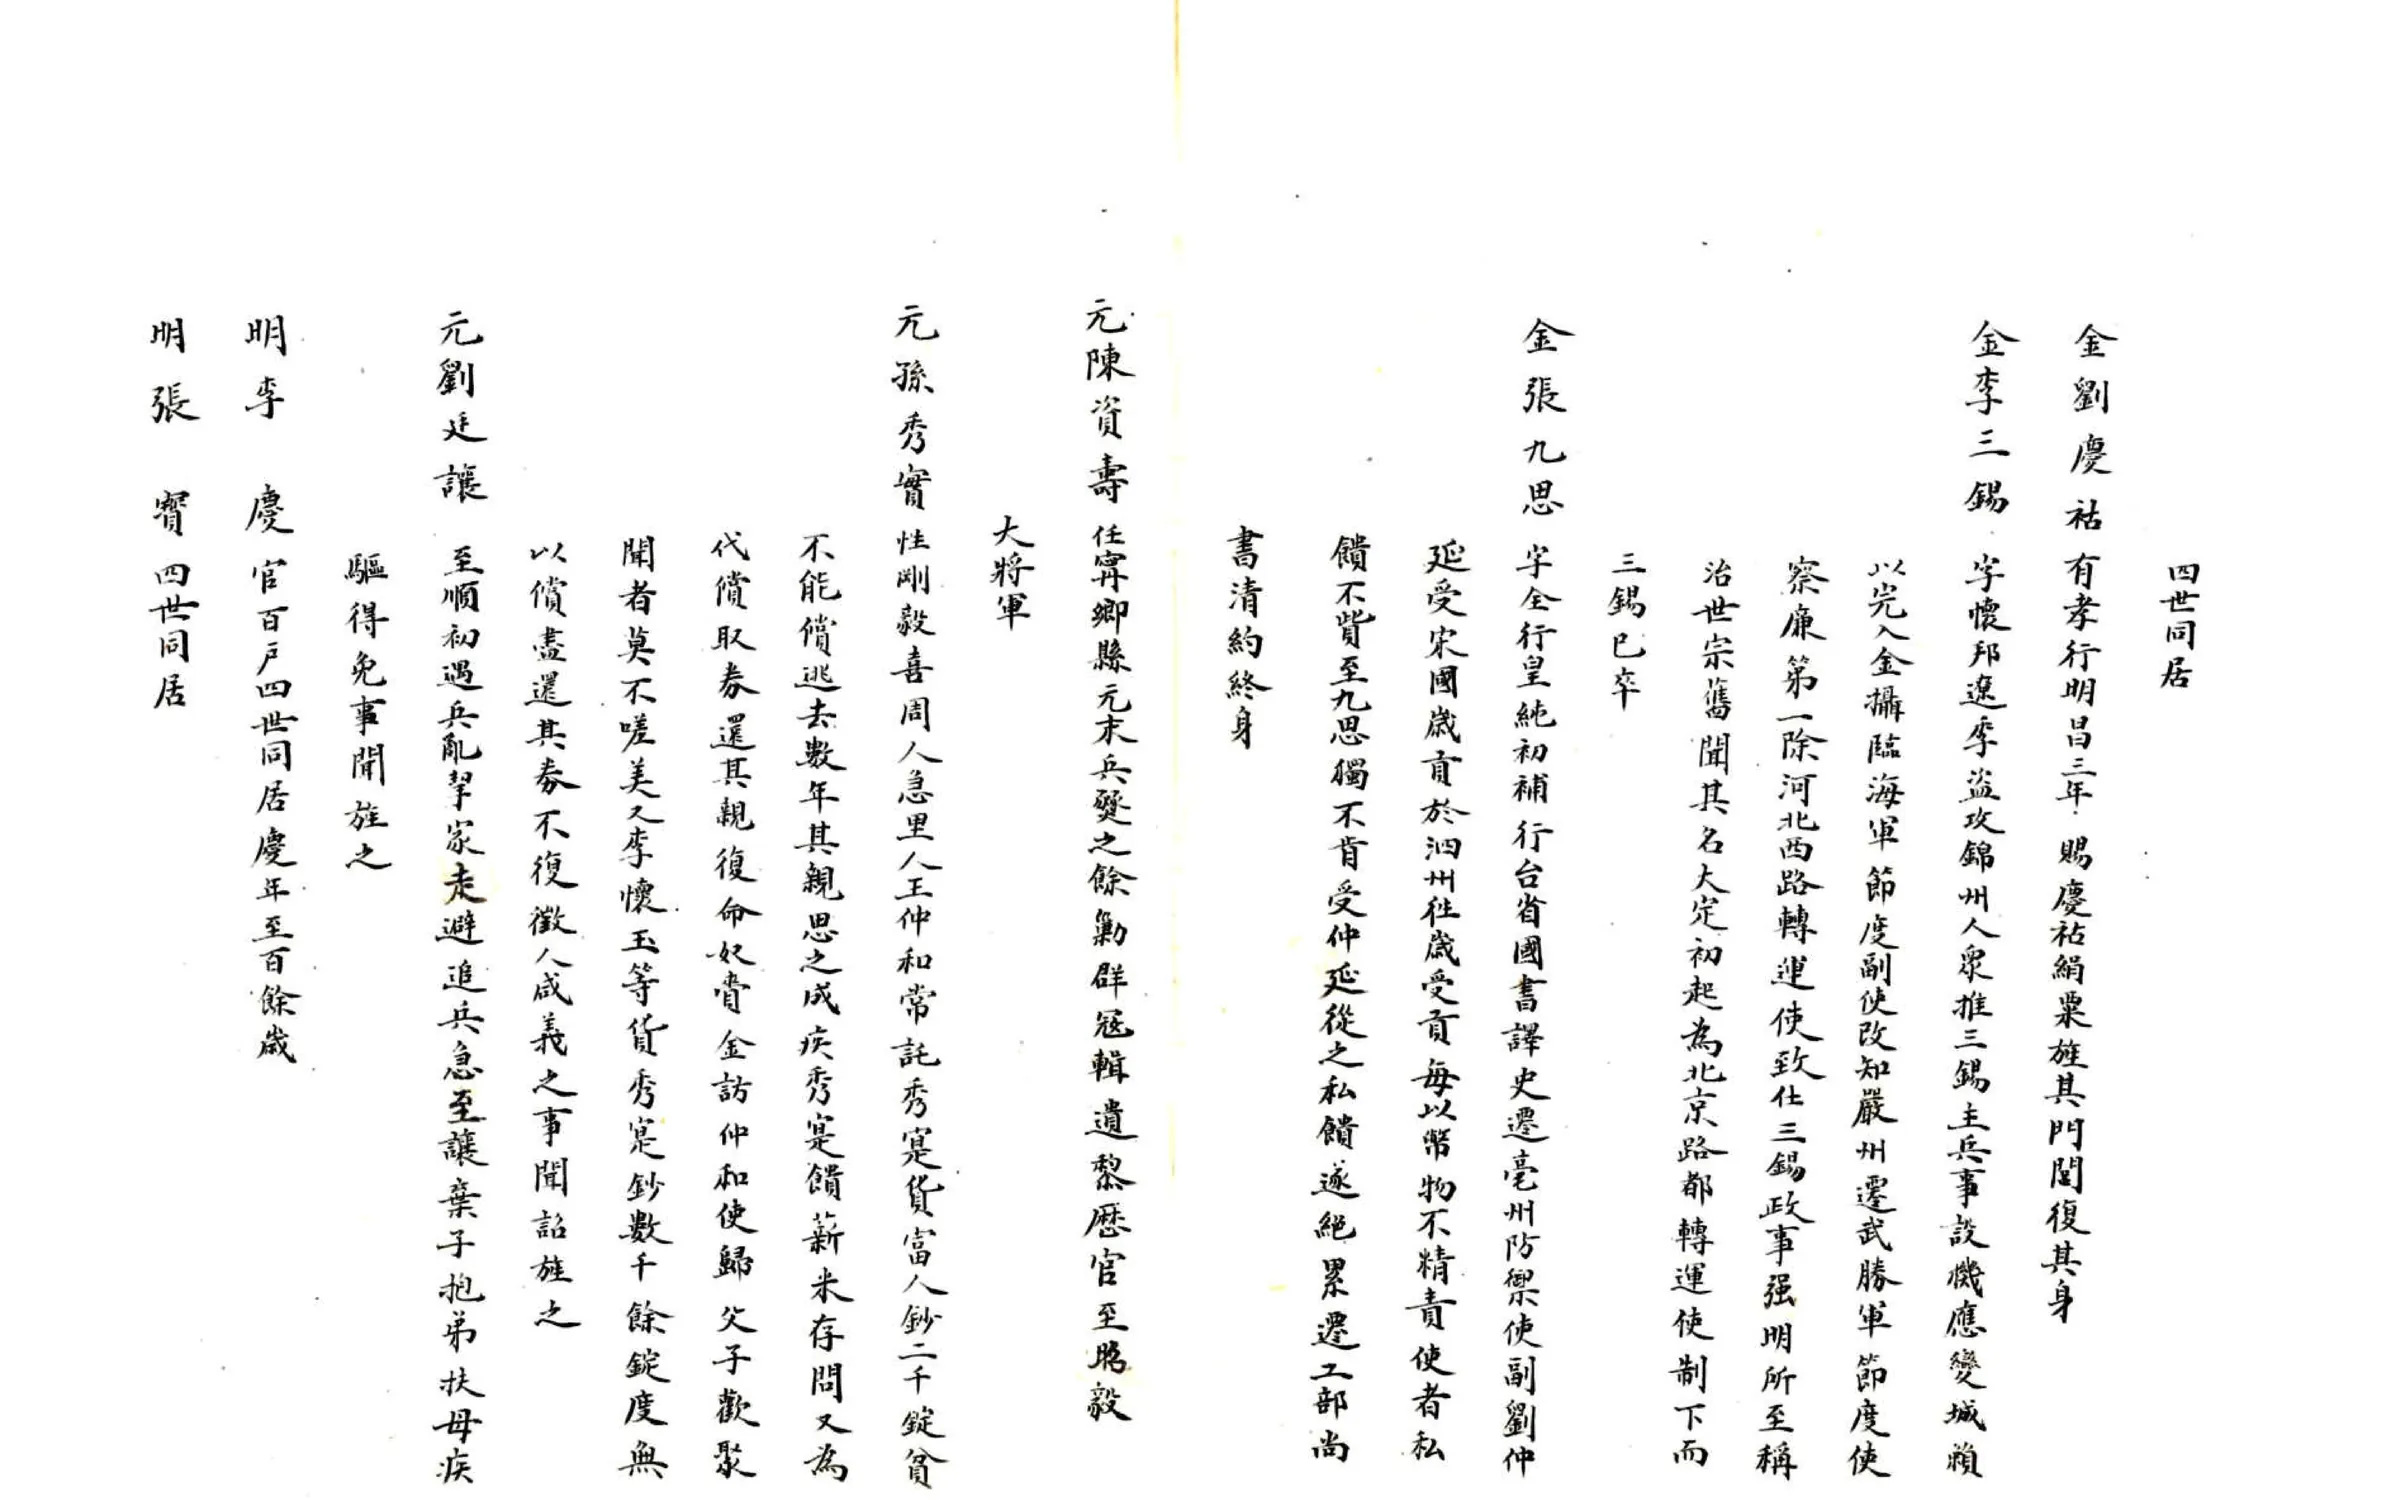 四世同居
金劉慶祜有孝行明昌三年賜慶祜絹粟旌其門閭復其身
金李三錫字懷邦遼季盜攻錦州人眾推三錫主兵事設機應變城賴
以完入金攝臨海軍節度副使改知嚴州遷武勝軍節度使
察廉第一除河北西路轉運使致仕三錫政事强明所至稱
治世宗舊聞其名大定初起為北京路都轉運使制下而
三錫已卒
金張九思字全行皇純初補行台省國書譯史遷亳州防禦使副劉仲
延受宋國歲貢於泗州徃歲受貢每以幣物不精責使者私
饋不貲至九思獨不肯受仲延從之私饋遂絕累遷工部尚
書清約終身
元陳資壽任寗鄉縣元末兵燹之餘勦群冦輯遺黎歷官至昭毅
大將軍
元孫秀實性剛毅喜周人急里人王仲和常託秀寔貸富人鈔二千錠貧
不能償逃去數年其親思之成疾秀寔饋薪米存問又為
代償取券還其親復命奴賫金訪仲和使歸父子歡聚
聞者莫不嗟美又李懷玉等貸秀寔鈔數千餘錠度無
以償盡還其券不復徵人咸義之事聞詔旌之
元劉廷讓至順初遇兵亂挈家走避追兵急至讓棄子抱弟扶母疾
驅得免事聞旌之
明李慶官百戶四世同居慶年至百餘歲
明張寳四世同居